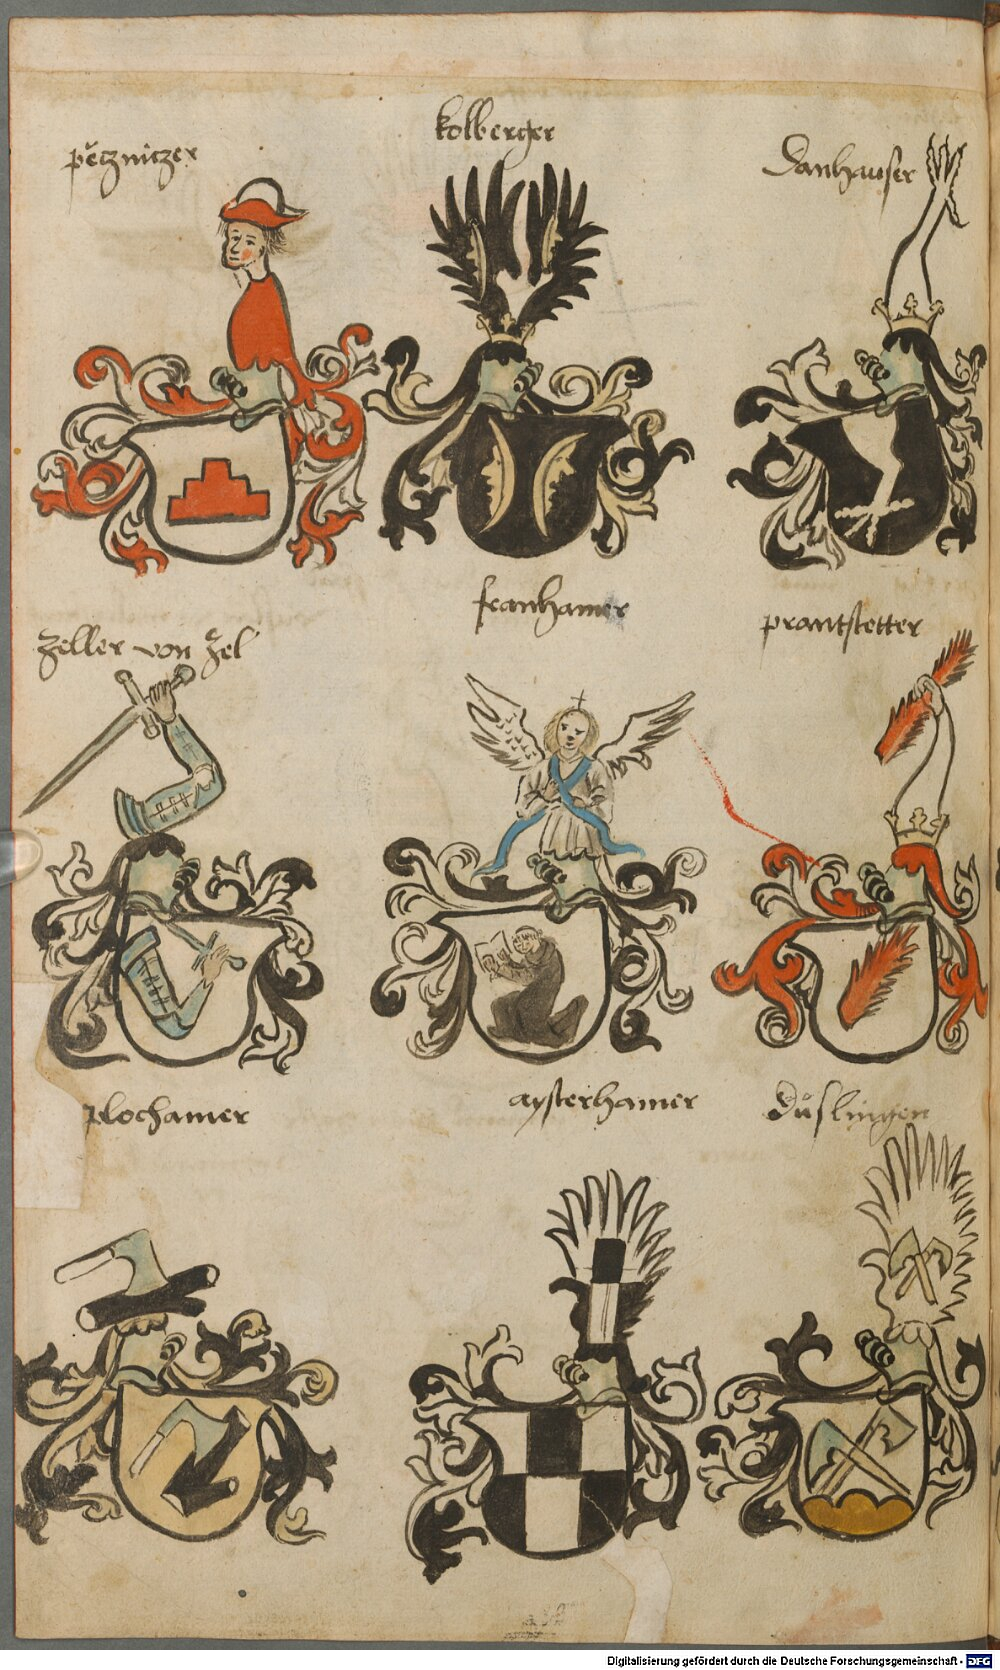 pëczniczer
kolberger
Danhauser
Zeller von Zel
franhamer
prantstetter
plochamer
aysterhamer
Düslingen
Digitalisierung gefördert durch die Deutsche Forschungsgemeinschaft - DFG